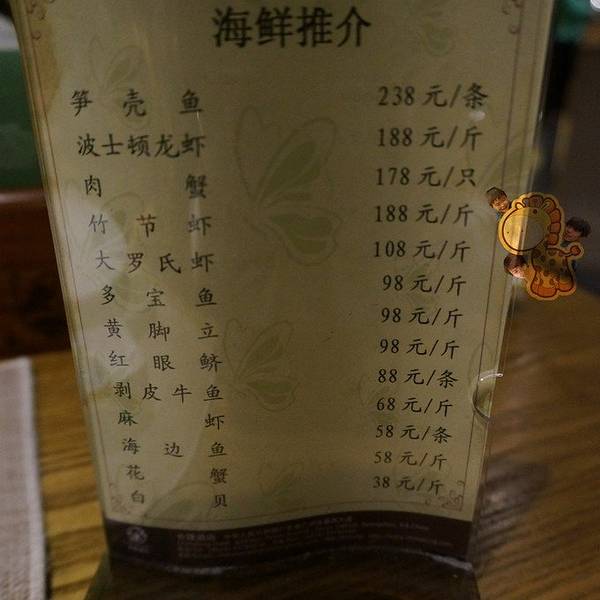 海鲜推介
笋壳鱼 238元/条
波士顿龙虾 188元/斤
肉蟹 178元/只
竹节虾 188元/斤
大罗氏虾 108元/斤
多宝鱼 98元/斤
黄脚立 98元/斤
红眼鲚 98元/斤
剥皮牛鱼 88元/条
麻虾 68元/斤
海边鱼 58元/条
花蟹 58元/斤
白贝 38元/斤